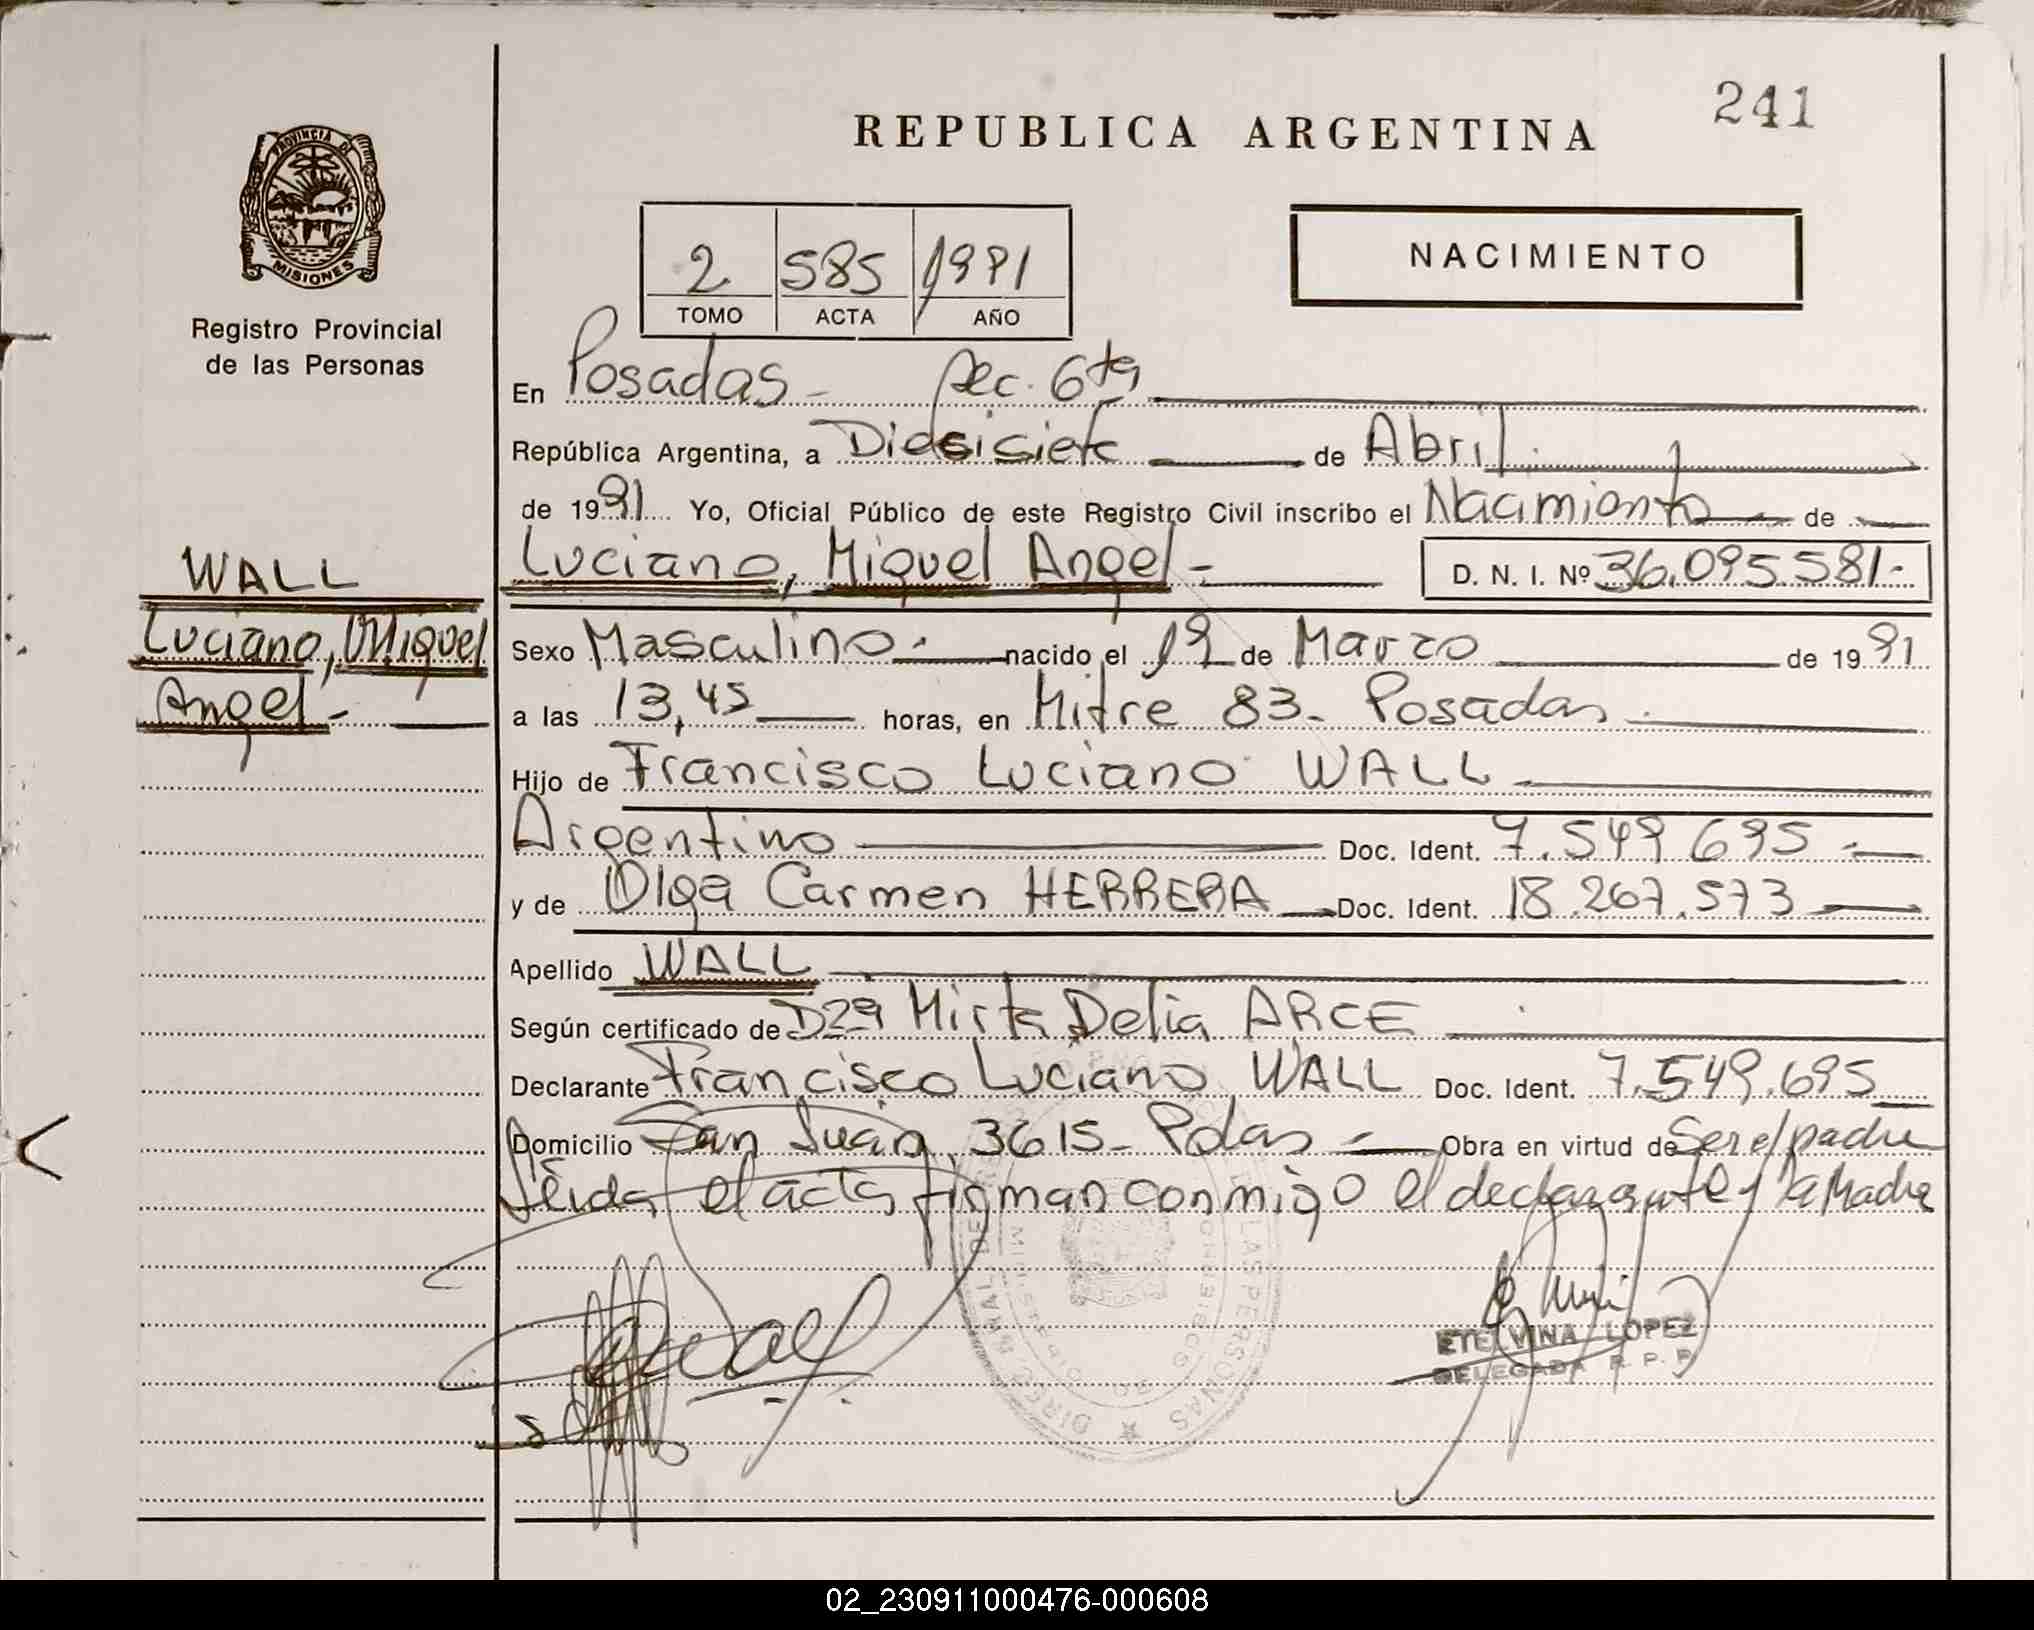 241
REPUBLICA ARGENTINA
PROVINCIA DE
MISIONES
Registro Provincial
de las Personas
2 585 1991
TOMO ACTA AÑO
NACIMIENTO
En Posadas - Sec. 6ta
República Argentina, a Diesisiete de Abril
de 1991 Yo, Oficial Público de este Registro Civil inscribo el Nacimiento de
Luciano, Miguel Angel - D. N. I. Nº 36.095.581-
WALL
Luciano, Miguel
Angel -
Sexo Masculino - nacido el 19 de Marzo de 1991
a las 13,45 horas, en Mitre 83- Posadas
Hijo de Francisco Luciano WALL
Argentino Doc. Ident. 7.549.695
y de Olga Carmen HERRERA Doc. Ident. 18.267.573
Apellido WALL
Según certificado de Dra Mirta Delia ARCE
Declarante Francisco Luciano WALL Doc. Ident. 7.549.695
Domicilio San Juan 3615- Pdas Obra en virtud de Ser el padre
Leida el acta firman conmigo el declarante y la Madre
ETELVINA LOPEZ
DELEGADA R. P. P.
02_230911000476-000608